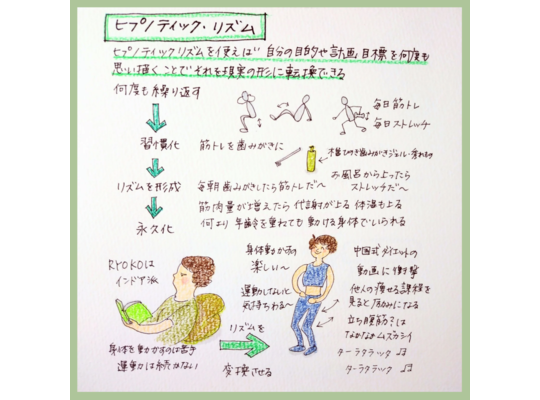 ヒプノティック・リズム
ヒプノティックリズムを使えば 自分の目的や計画、目標を何度も
思い描くことでそれを現実の形に転換できる
何度も繰り返す
毎日筋トレ
毎日ストレッチ
習慣化
筋トレを歯みがきに
リズムを形成
毎朝歯みがきしたら筋トレだ〜
お風呂から上ったら
ストレッチだ〜
永久化
筋肉量が増えたら代謝が上る 体温も上る
何より年齢を重ねても動ける身体でいられる
RYOKOは
インドア派
身体を動かすのは苦手
運動は続かない
リズムを
変換させる
身体動かすの
楽しい〜
運動しないと
気持ちわる〜
中国式ダイエットの
動画に衝撃
他人の痩せる課程を
見ると励みになる
立ち腹筋?は
なかなかムズカシイ
ターラタラッタ ♫
ターラタラッタ ♫